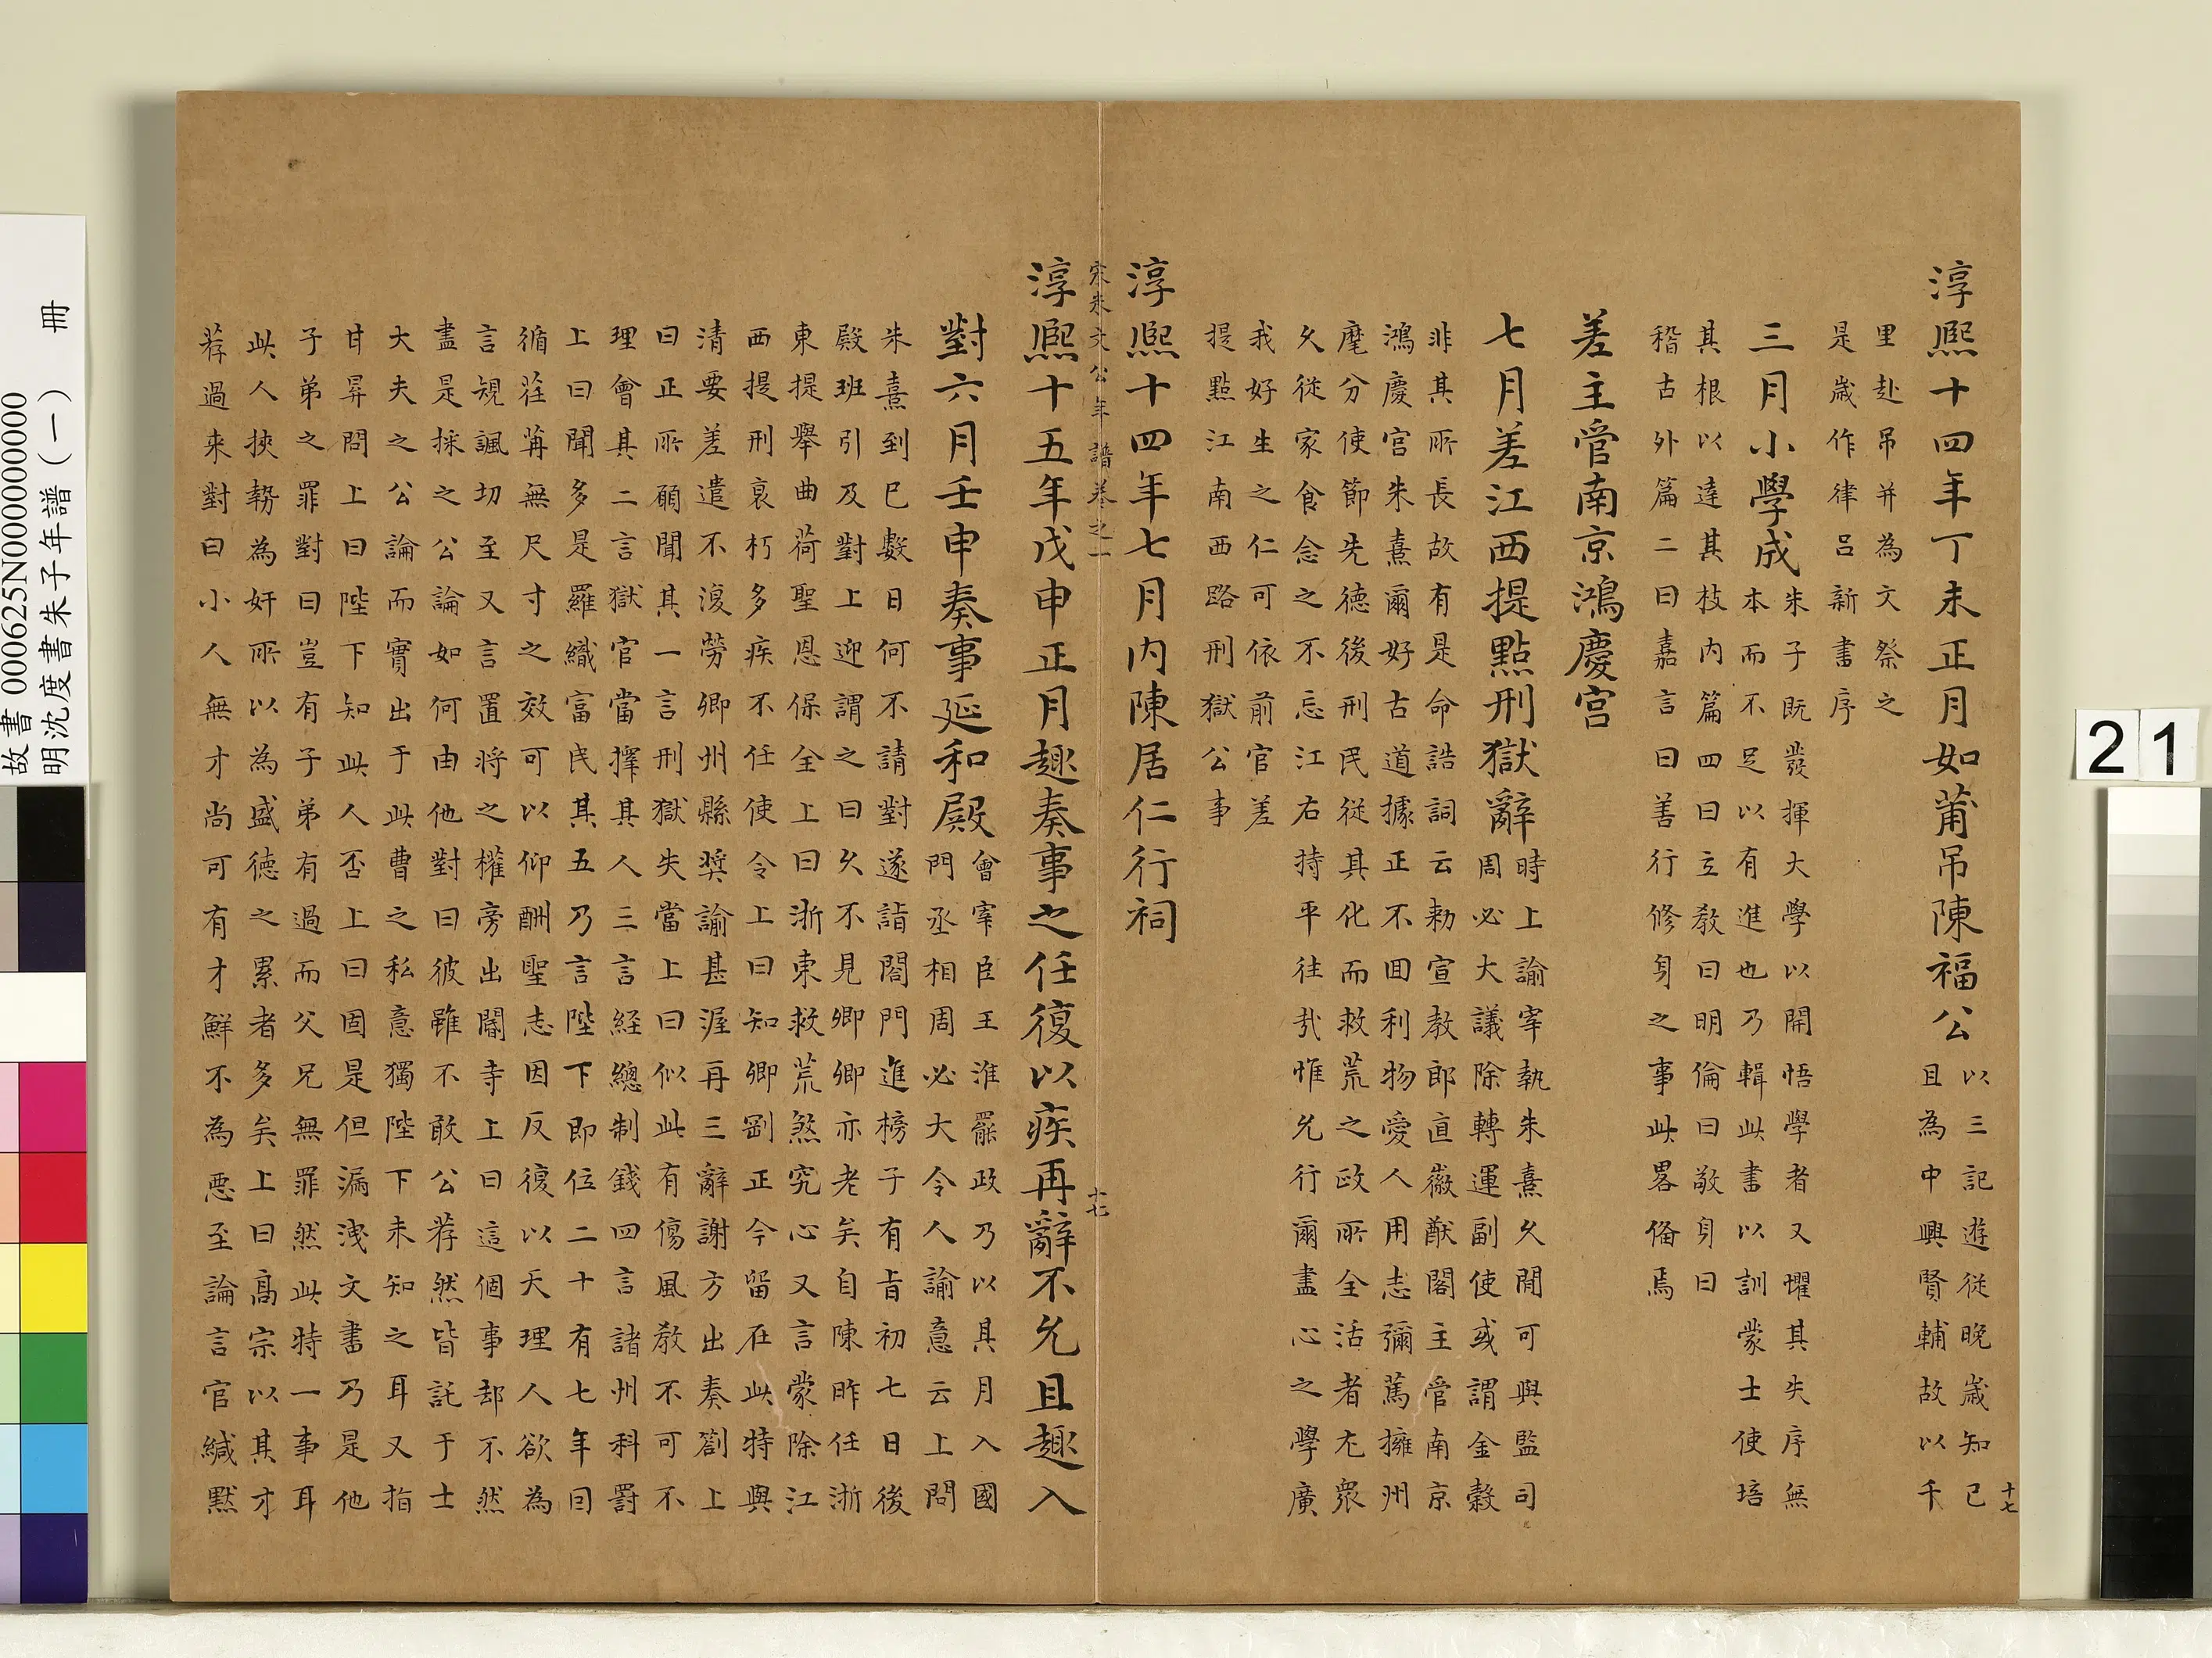 淳熙十四年丁未正月如莆吊陳福公
以三記遊從晚歲知己
且為中興賢輔故以千
里赴吊并為文祭之
是歲作律呂新書序
三月小學成
朱子既發揮大學以開悟學者又懼其失序無
本而不足以有進也乃輯此書以訓蒙士使培
其根以達其枝內篇四曰立教曰明倫曰敬身曰
稽古外篇二曰嘉言曰善行修身之事此畧俻焉
差主管南京鴻慶宫
七月差江西提點刑獄辭
時上諭宰執朱熹久閒可與監司
周必大議除轉運副使或謂金穀
非其所長故有是命誥詞云勑宣教郎直徽猷閣主管南京
鴻慶宫朱熹爾好古道據正不囬利物愛人用志彌篤擁州
麾分使節先德後刑民從其化而救荒之政所全活者尤衆
久從家食念之不忘江右持平往㢤惟允行爾盡心之學廣
我好生之仁可依前官差
提點江南西路刑獄公事
淳熙十四年七月內陳居仁行祠
宋朱文公年譜卷之一
十七
淳熙十五年戊申正月趣奏事之任復以疾再辭不允且趣入
對六月壬申奏事延和殿
會宰臣王淮罷政乃以其月入國
門丞相周必大令人諭意云上問
朱熹到已數日何不請對遂詣閤門進榜子有旨初七日後
殿班引及對上迎謂之曰久不見卿卿亦老矣自陳昨任浙
東提舉曲荷聖恩保全上曰浙東救荒煞究心又言蒙除江
西提刑哀朽多疾不任使令上曰知卿剛正今留在此特與
清要差遣不復勞卿州縣獎諭甚渥再三辭謝方出奏劄上
曰正所願聞其一言刑獄失當上曰似此有傷風教不可不
理會其二言獄官當擇其人三言経總制錢四言諸州科罸
上曰聞多是羅織富民其五乃言陛下即位二十有七年囙
循荏苒無尺寸之效可以仰酬聖志因反復以天理人欲為
言規諷切至又言置將之權旁出閽寺上曰這個事却不然
盡是採之公論如何由他對曰彼雖不敢公荐然皆託于士
大夫之公論而實出于此曹之私意獨陛下未知之耳又指
甘昇問上曰陛下知此人否上曰固是但漏洩文書乃是他
子弟之罪對曰豈有子弟有過而父兄無罪然此特一事耳
此人挾勢為奸所以為盛德之累者多矣上曰髙宗以其才
荐過来對曰小人無才尚可有才鮮不為惡至論言官緘黙
十七
21
故書 000625N000000000
明沈度書朱子年譜(一) 冊